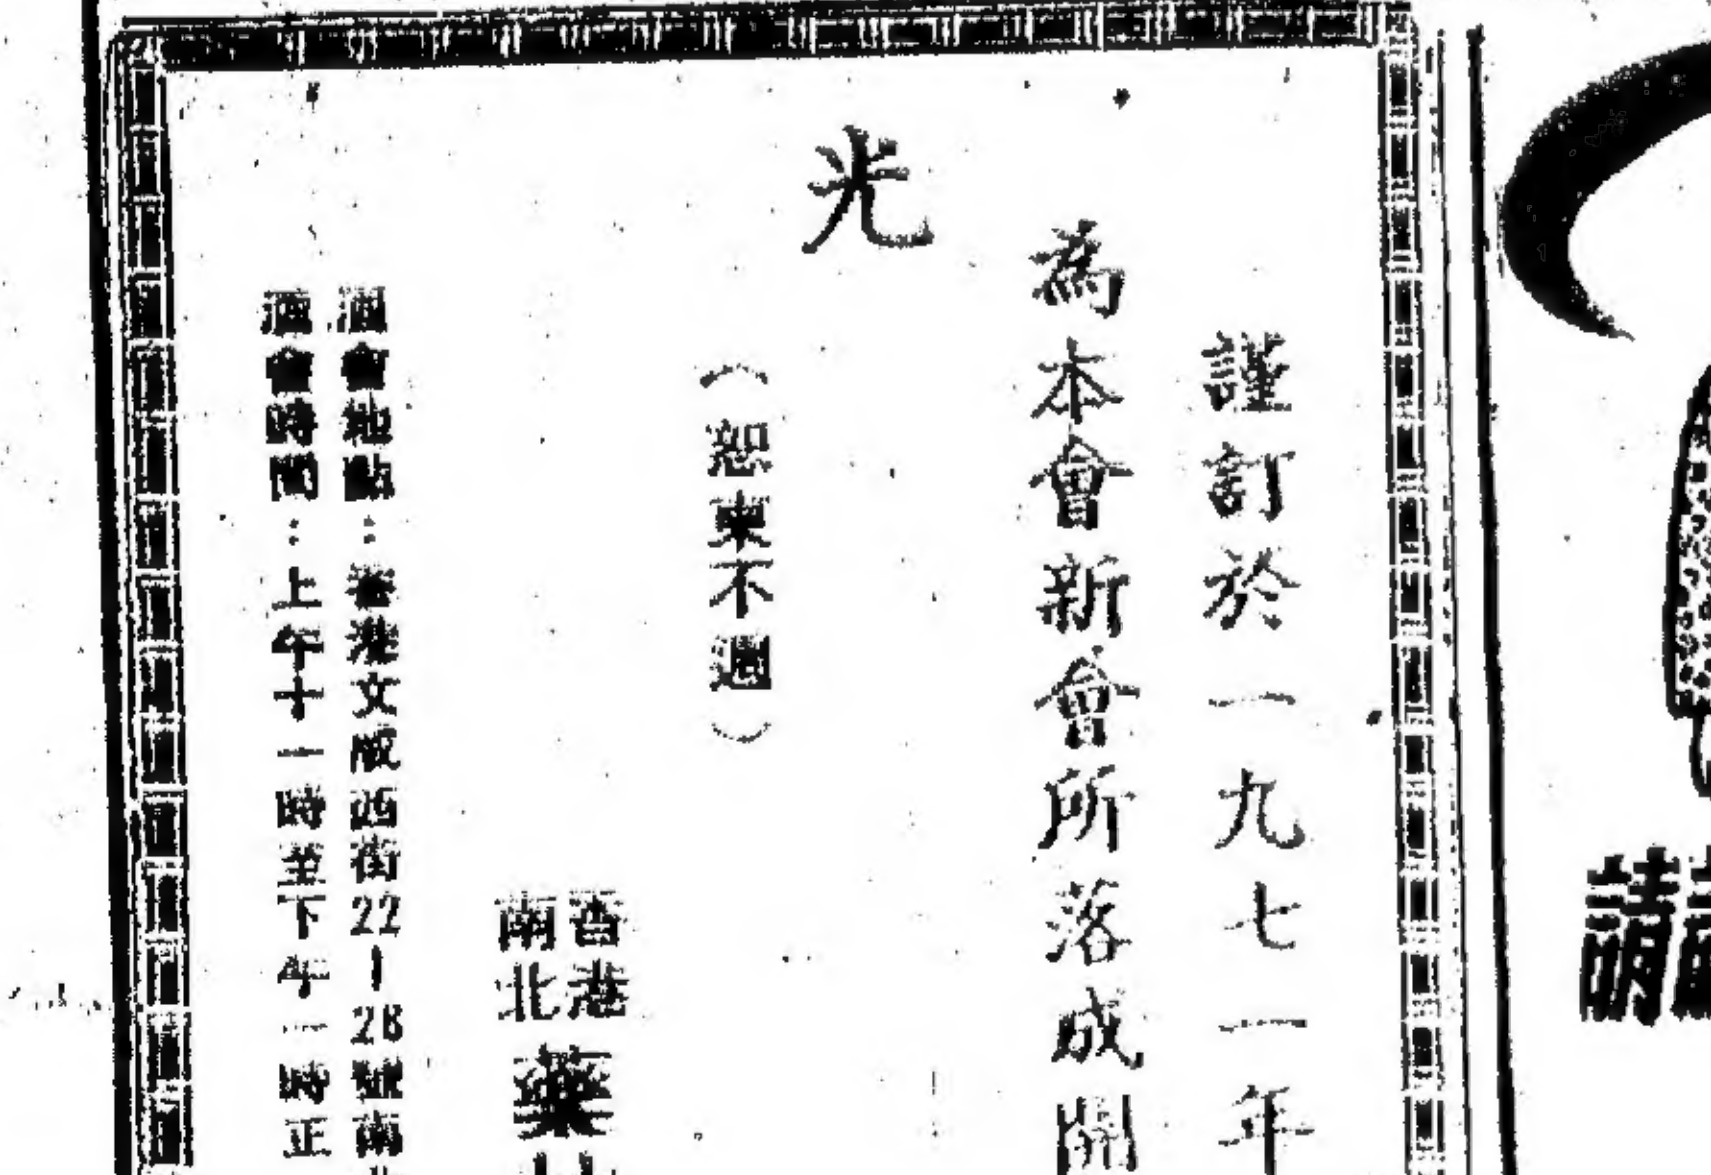 請
謹訂於一九七一年
為本會新會所落成開
光
（恕柬不週）
香港
南北
藥材
酒會地點：香港文咸西街22-28號南北
酒會時間：上午十一時至下午一時正